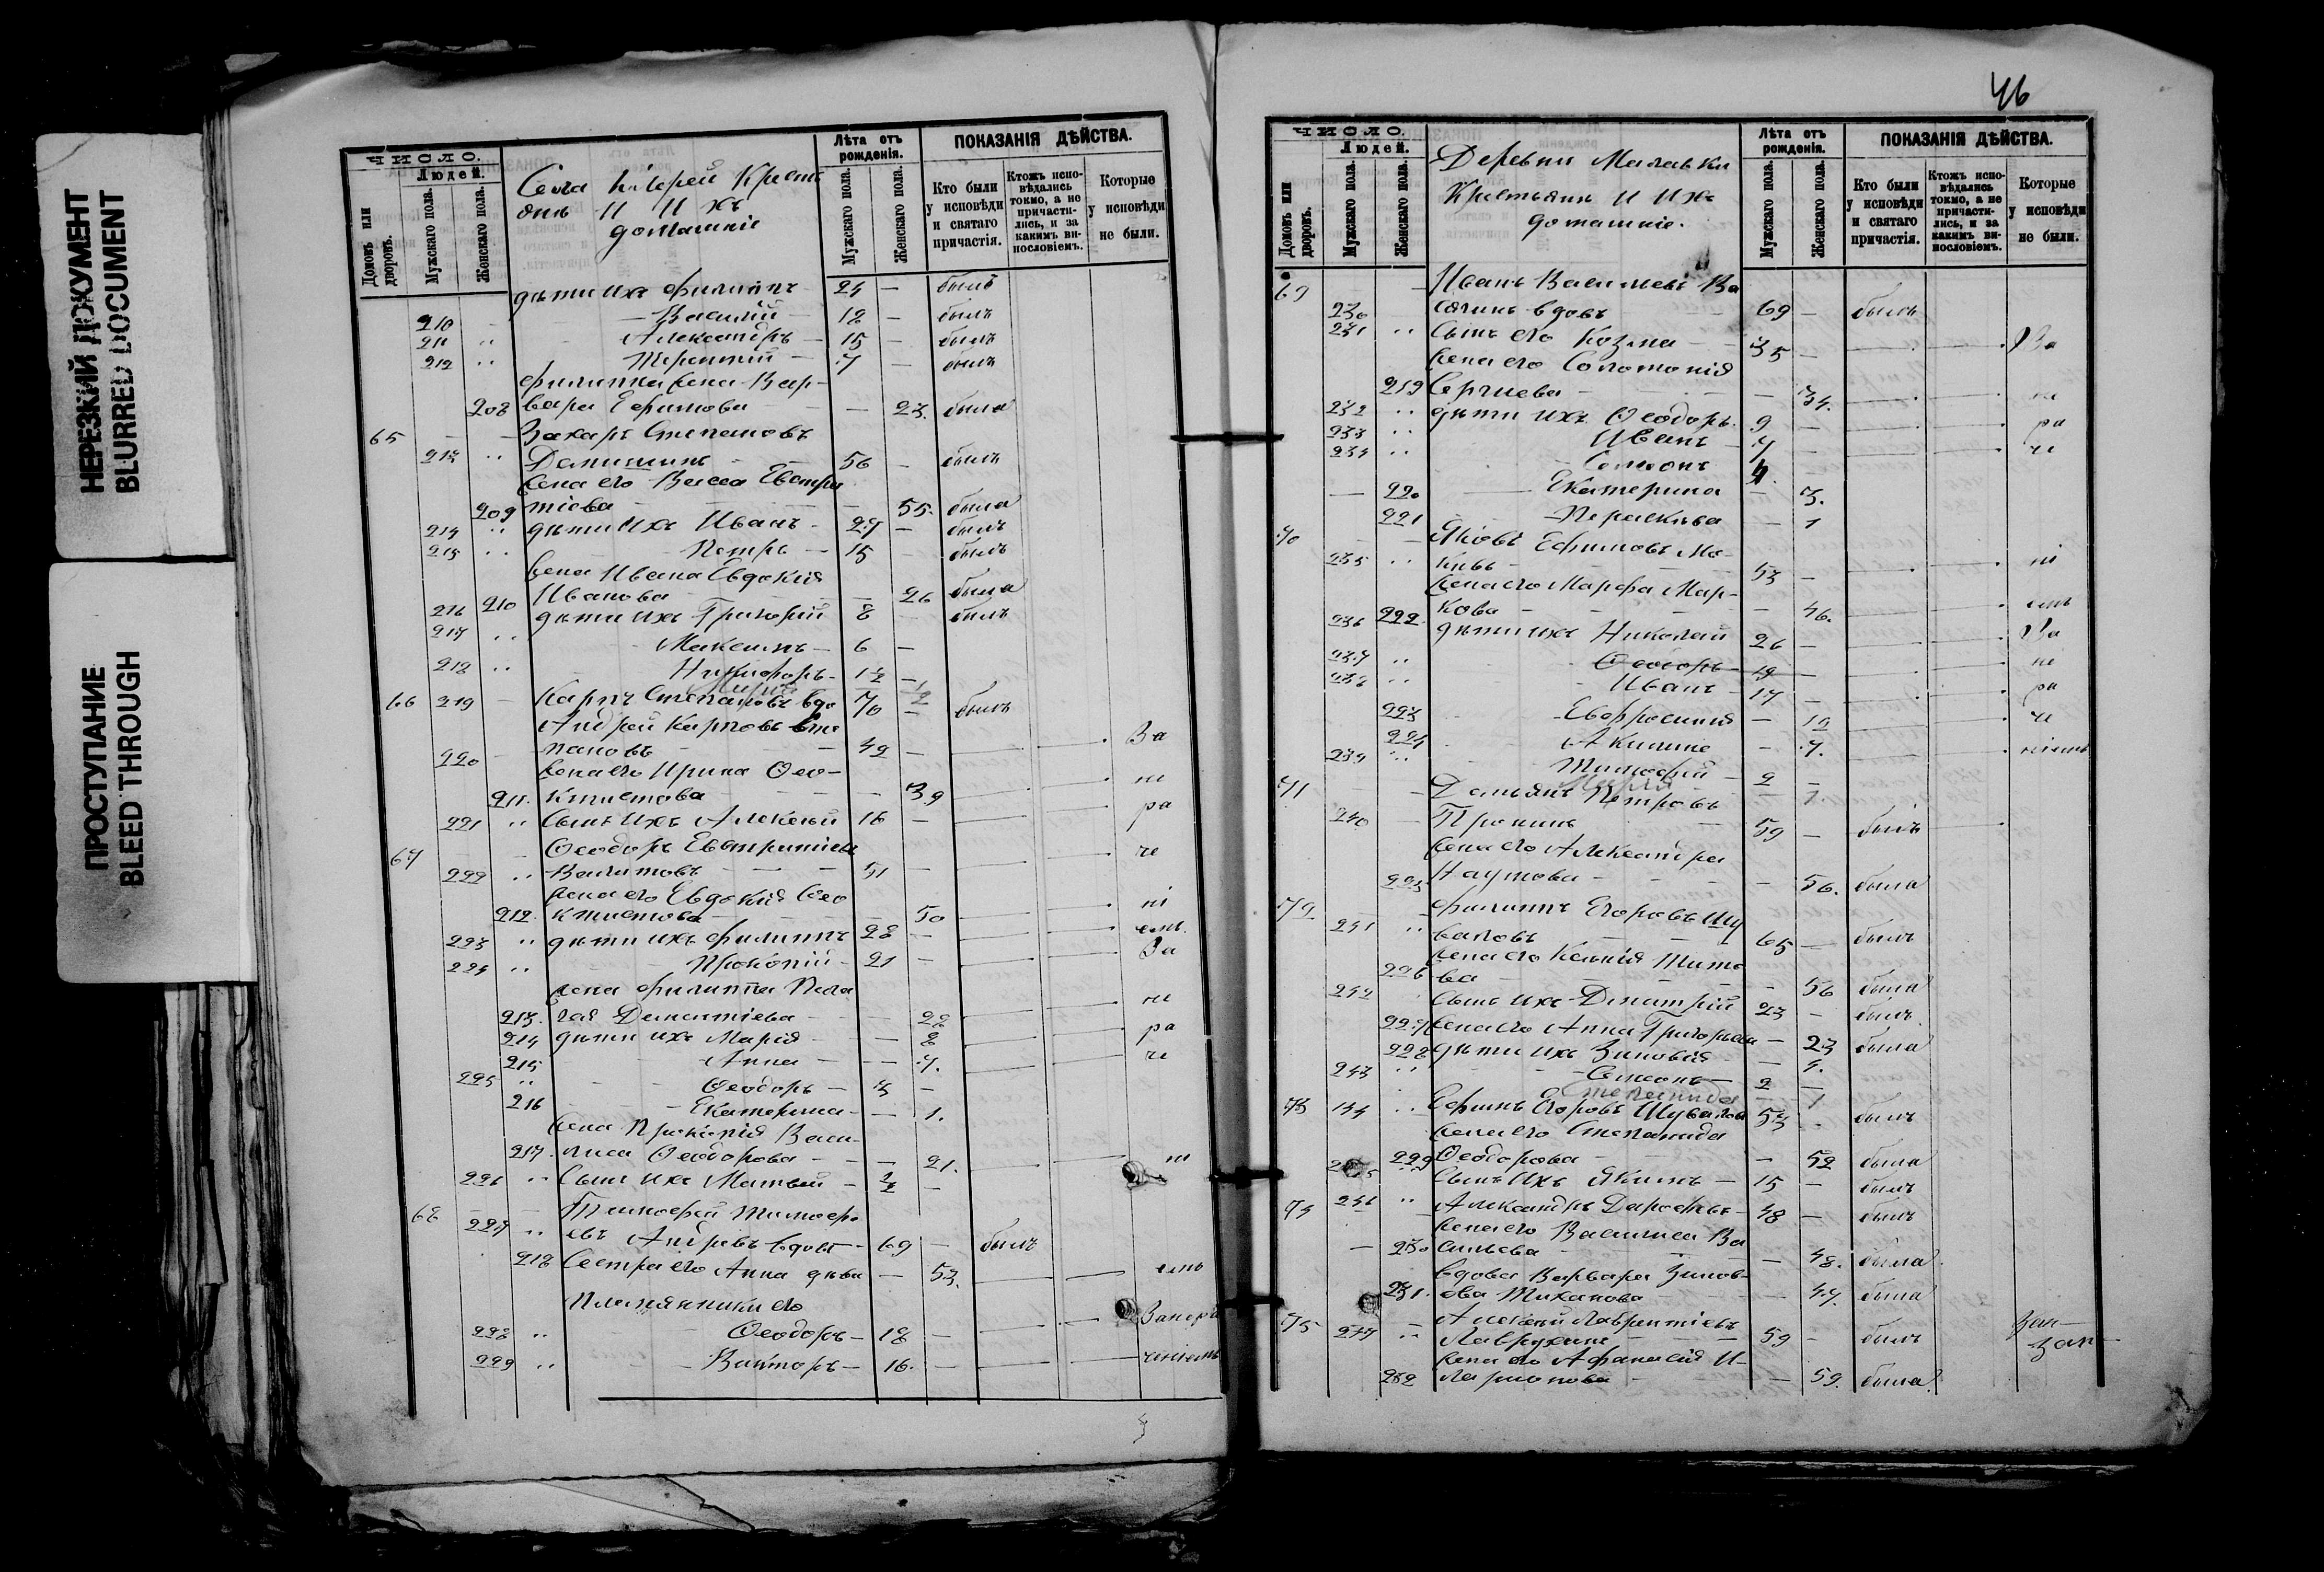 НЕРЕЗКИЙ ДОКУМЕНТ
BLURRED DOCUMENT
ПРОСТУПАНИЕ
BLEED THROUGH
ЧИСЛО.
Людей.
Домовъ или дворовъ.
Мужскаго пола.
Женскаго пола.
Села Крестьянъ и ихъ
домашніе
Лѣта отъ рожденія.
Мужскаго пола.
Женскаго пола.
ПОКАЗАНІЯ ДѢЙСТВА.
Кто были у исповѣди и святаго причастія.
Ктожъ исповѣдались токмо, а не причастились, и за какимъ винословіемъ.
Которые у исповѣди не были.
дѣти ихъ Филиппъ 24 — былъ
210 Василій 18 — былъ
211 " Александръ — 15 — былъ
212 " Терентій — 7 — былъ
Филиппа жена Вар-
208 вара Ефимова — 23. была
65 — Захаръ Степановъ
213 " 56 — былъ
жена его Васса Евстра
209 тіева — 55. была
214 " дѣти ихъ Иванъ — 27 — былъ
215 " Петръ — 15 — былъ
жена Ивана Евдокія
210 Иванова — 26 была
216 дѣти ихъ Григорій 8 — былъ
217 " Максимъ — 6 —
218 " Никифоръ — 1/2 —
66 219 — Карпъ Степановъ вдо 70 — былъ
Андрей Карповъ Сте
220 пановъ — 42 — За
жена его Ирина Өео-
211. ктистова — 39 не
221 " Сынъ ихъ Алексѣй 16 — ра
67 — Өеодоръ Евстратіевъ че
222 " 51 —
жена его Евдокія Өео
212. ктистова — 50 ні
223 " дѣти ихъ Филиппъ 28 — емъ.
224 " Прокопій — 21 — За
жена Филиппа Пела
213. гея Дементіева — 28 не
214 дѣти ихъ Марія — 8 ра
215 Анна — 7. че
225 " Өеодоръ — 3 —
216 Екатерина — 1.
жена Прокопія Васи-
217. лиса Өеодорова — 21. ні
226 " Сынъ ихъ Матвей — 1/2 —
68 — Тимофей Тимофе
227 " евъ вдовъ — 69 — былъ
218 Сестра его Анна дѣва — 53. емъ
Племянники его
228 " Өеодоръ — 18 —
229 " Викторъ — 16. —
46
ЧИСЛО.
Людей.
Домовъ или дворовъ.
Мужскаго пола.
Женскаго пола.
Деревни Малавки
Крестьянъ и ихъ
домашніе.
Лѣта отъ рожденія.
Мужскаго пола.
Женскаго пола.
ПОКАЗАНІЯ ДѢЙСТВА.
Кто были у исповѣди и святаго причастія.
Ктожъ исповѣдались токмо, а не причастились, и за какимъ винословіемъ.
Которые у исповѣди не были.
69 — Иванъ Васильевъ Ва
230 вдовъ 69 — былъ
231 " Сынъ его Козма — 35 — За
жена его Соломонія
219 Сергиева — 34. не
232 " дѣти ихъ Өеодоръ 9 — ра
233 " Иванъ — 7 — че
234 " Симеонъ 4.
— 220 Екатерина — 3.
221 Параскева — 1
70 — Яковъ Ефимовъ Мо-
235 " 53 — ні
жена его Марфа Мар-
222. кова — 46. емъ
236 дѣти ихъ Николай 26 — За
237 " Өеодоръ — 19 — не
238 " Иванъ — 17 — ра
223 Евфросинія — 12 че
224 Акилина — 7. ніемъ
239 " Тимофей — 2 —
71 — Дамьянъ Петровъ
240 — Пронинъ 59 — былъ
жена его Александра
225 Наумова — 56. была
72 — Филиппъ Егоровъ Шу
241 " валовъ — 65 — былъ
жена его Ксенія Тито
226 ва — 56 была
242 Сынъ ихъ Димитрій 23 — былъ.
227 жена его Анна Григорьева — 23 была
228 дѣти ихъ Зиновія — 4.
243 " Симеонъ — 2 —
Степанида — 1
73 " Ефимъ Егоровъ Шувалов 53 былъ
жена его Степанида
229 Өеодорова — 52 была
Сынъ ихъ Якимъ — 15 — былъ
74 246 " Александръ — 48 — былъ
жена его Василиса Ва
— 230 сильева — 48. была
вдова Варвара Зинов-
231. ева Тиханова — 47. была
75 — Алексѣй Лаврентіевъ
247 " 59 — былъ
жена его Афанасія И-
232 ларионова — 59. была.